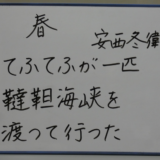 春
安西冬衛
てふてふが一匹
韃靼海峡を
渡って行った